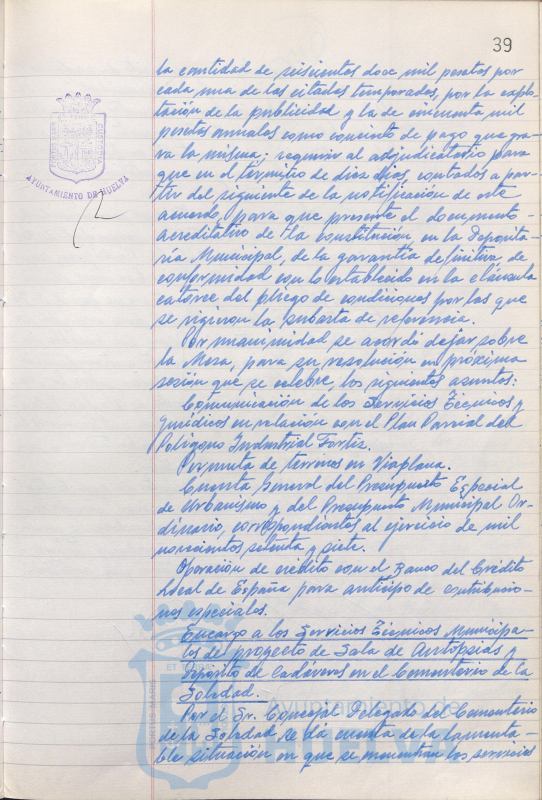 39
la cantidad de seiscientos doce mil pesetas por
cada una de las citadas temporadas, por la explo-
tación de la publicidad y la de cincuenta mil
pesetas anuales como concierto de pago que gra-
va la misma; requerir al adjudicatario para
que en el término de diez días, contados a par-
tir del siguiente de la notificación de este
acuerdo, para que presente el documento
acreditativo de la constitución en la Deposita-
ría Municipal, de la garantía definitiva de
conformidad con lo establecido en la cláusula
catorce del pliego de condiciones por las que
se rigieron la subasta de referencia.
Por unanimidad se acordó dejar sobre
la Mesa, para su resolución en próxima
sesión que se celebre, los siguientes asuntos:
Comunicación de los Servicios Técnicos y
Jurídicos en relación con el Plan Parcial del
Polígono Industrial Fortiz.
Permuta de terrenos en Viaplana.
Cuenta General del Presupuesto Especial
de Urbanismo y del Presupuesto Municipal Or-
dinario, correspondientes al ejercicio de mil
novecientos setenta y siete.
Operación de crédito con el Banco del Crédito
Local de España para anticipo de contribucio-
nes especiales.
Encargo a los Servicios Técnicos Municipa-
les del proyecto de Sala de Autopsias y
Depósito de Cadáveres en el Cementerio de la
Soledad.
Por el Sr. Concejal Delegado del Cementerio
de la Soledad se dá cuenta de la lamenta-
ble situación en que se encuentran los servicios
AYUNTAMIENTO DE HUELVA
Ayuntamiento de
HUELVA